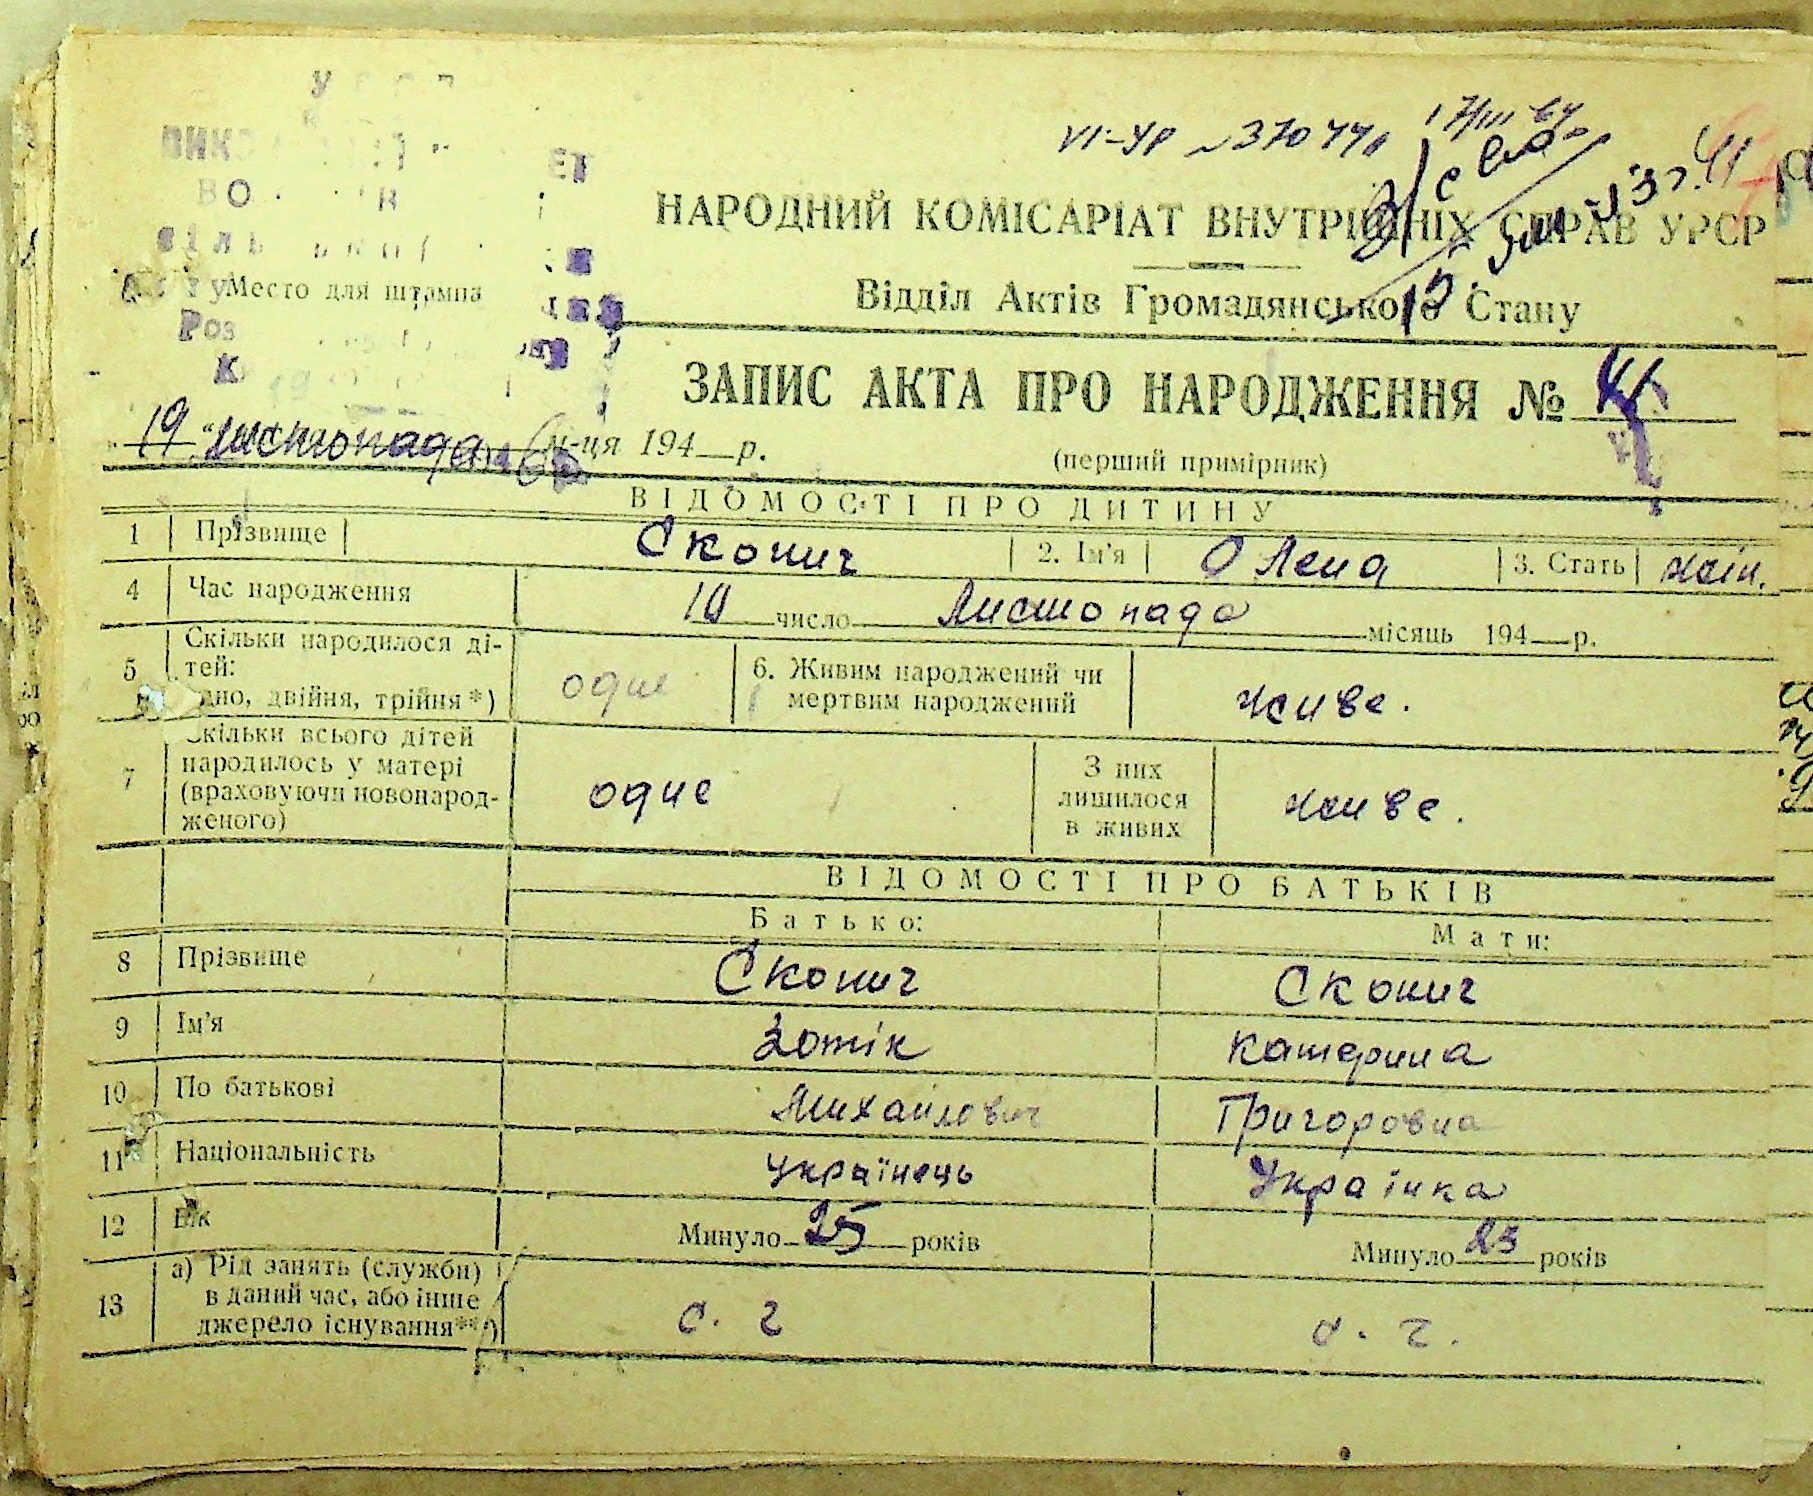 VI-УР № 370440
НАРОДНИЙ КОМІСАРІАТ ВНУТРІШНІХ СПРАВ УРСР
Відділ Актів Громадянського Стану
Место для штампа
ЗАПИС АКТА ПРО НАРОДЖЕННЯ №
„19“ листопада м-ця 194 р.
(перший примірник)
ВІДОМОСТІ ПРО ДИТИНУ
1 Прізвище Сконич 2. Ім'я Олена 3. Стать жін.
4 Час народження 10 число Листопада місяць 194 р.
5 Скільки народилося ді-
тей:
двійня, трійня*) одне
6. Живим народжений чи
мертвим народжений живе.
7 Скільки всього дітей
народилось у матері
(враховуючи новонарод-
женого) одне
З них
лишилося
в живих живе.
ВІДОМОСТІ ПРО БАТЬКІВ
Батько: Мати:
8 Прізвище Сконич Сконич
9 Ім'я Зотік Катерина
10 По батькові Михайлович Григоровна
11 Національність українець Українка
12 Вік Минуло 25 років Минуло 23 років
13 а) Рід занять (служби)
в даний час, або інше
джерело існування**) с. г с. г.